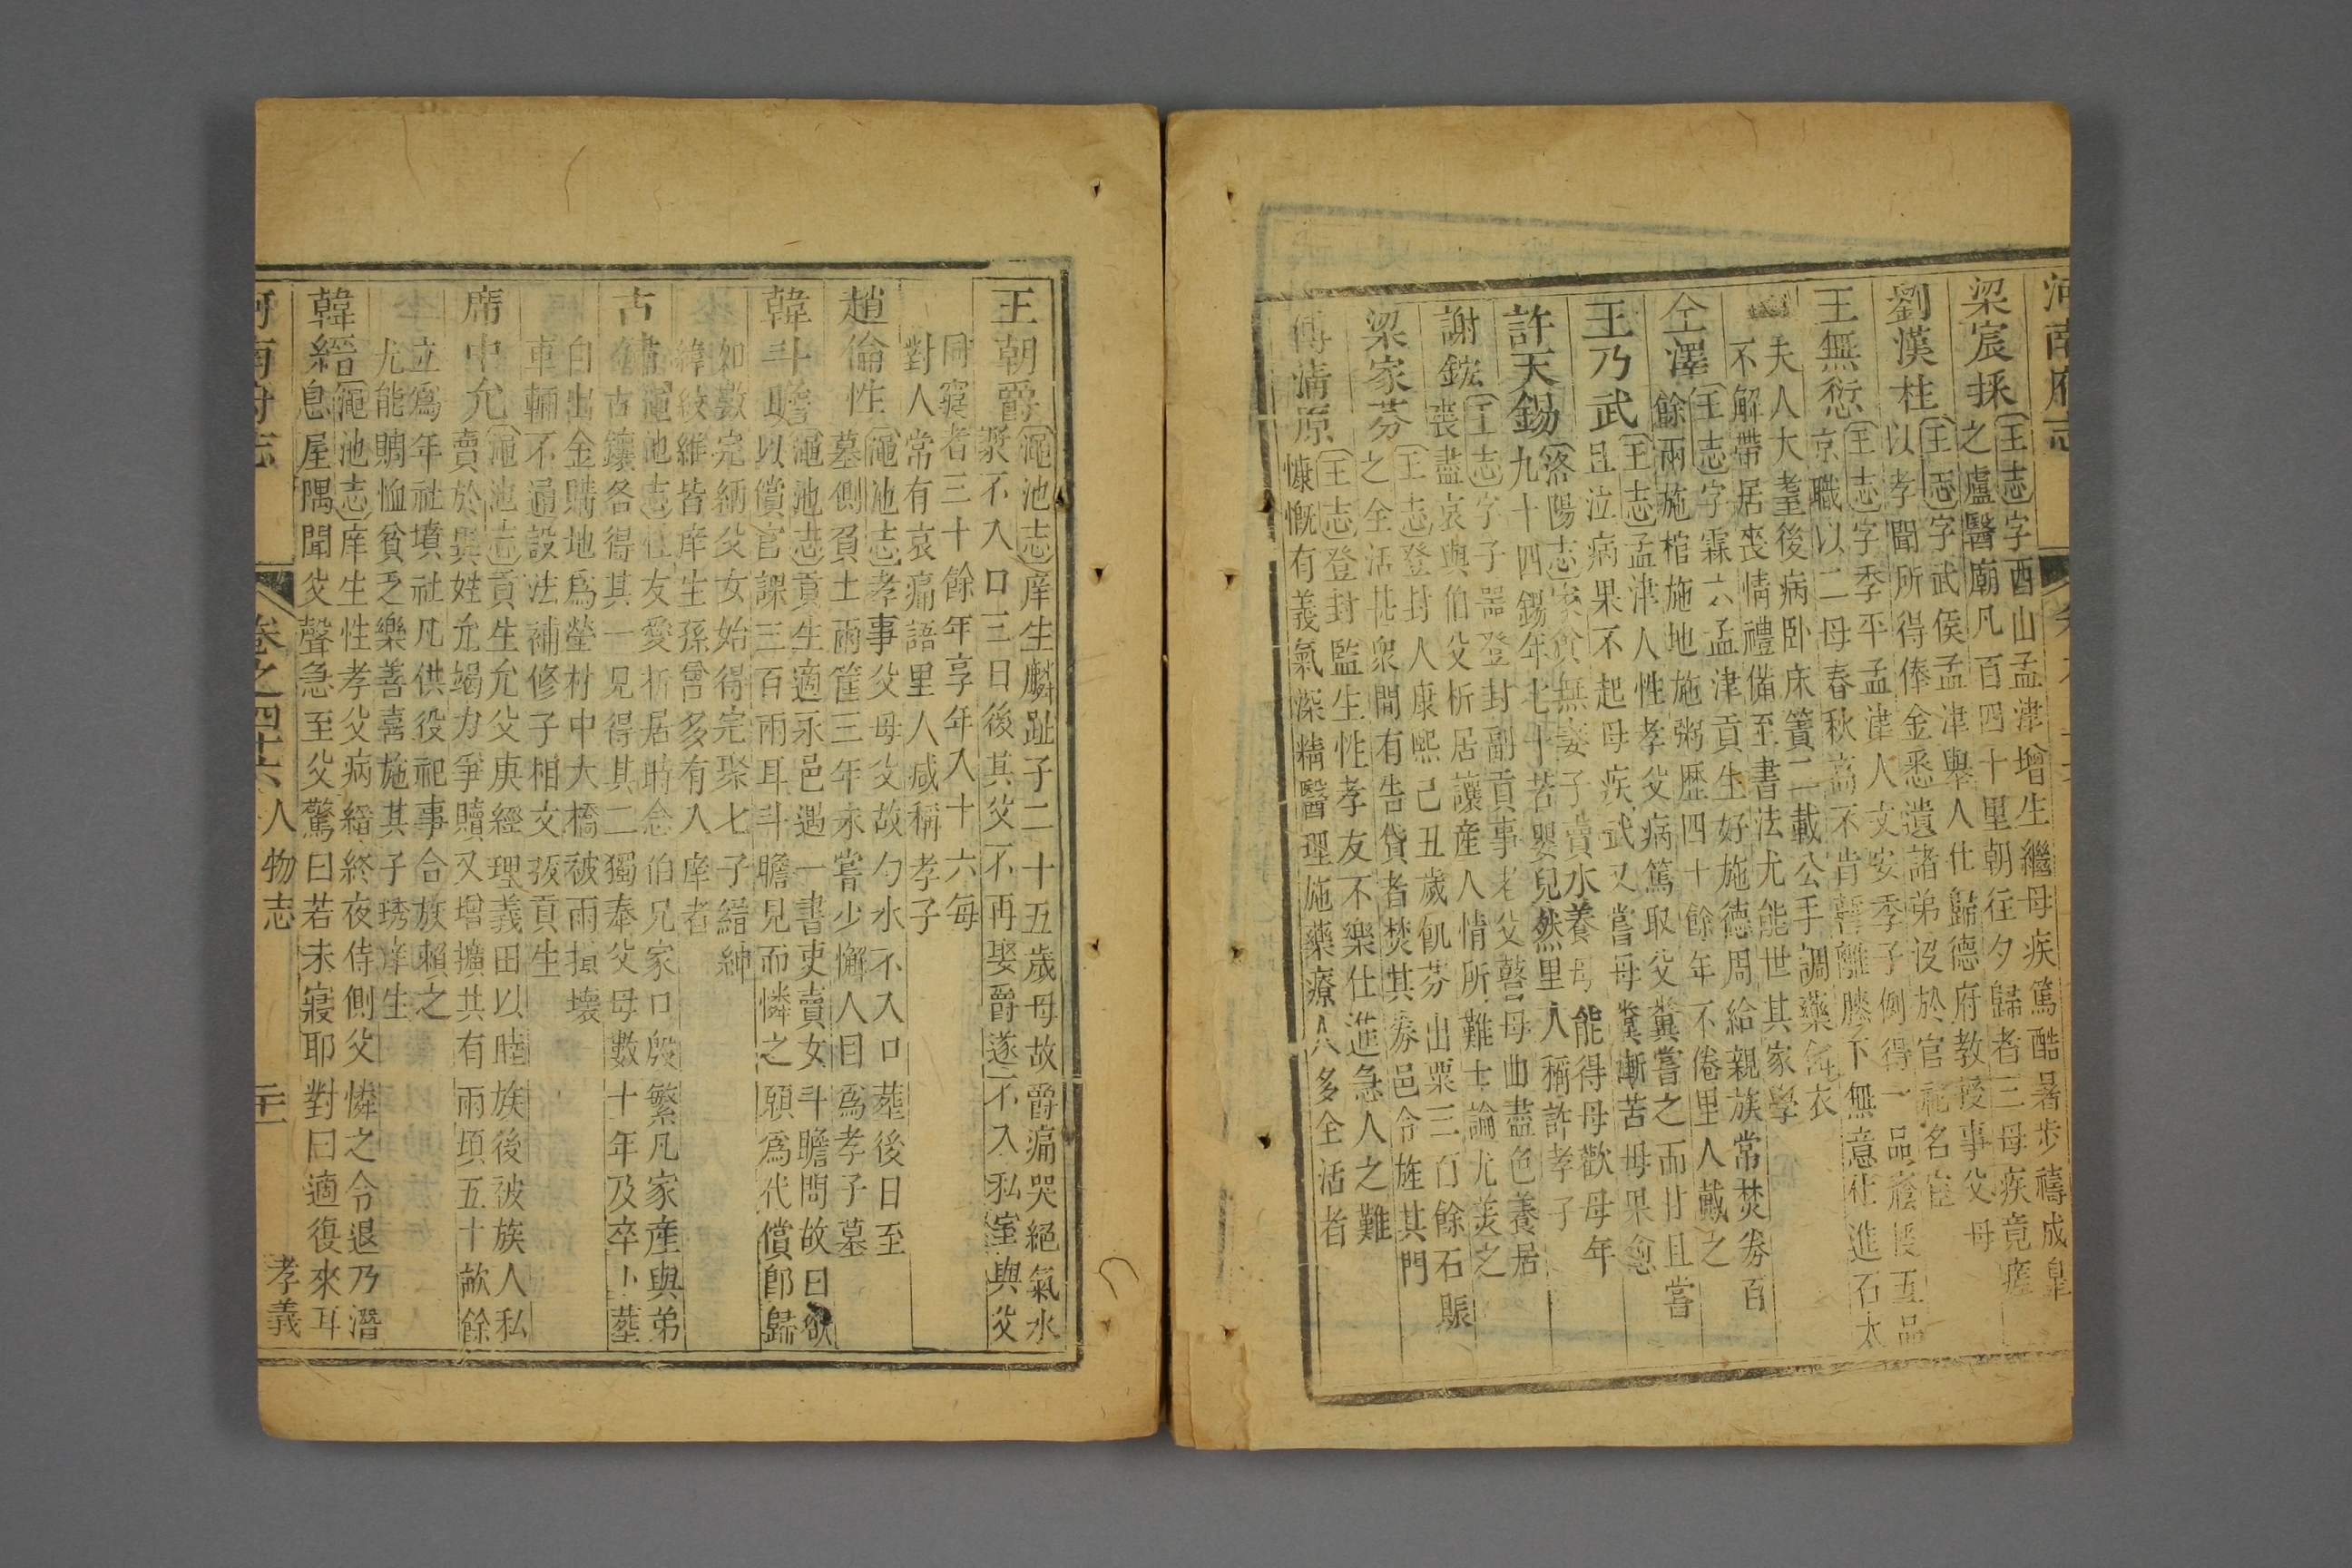 河南府志
梁宸採
王志字酉山孟津增生繼母疾篤酷暑步禱成皐
之盧醫廟凡百四十里朝往夕歸者三母疾竟痊
劉漢柱
王志字武侯孟津舉人仕歸德府教授事父母
以孝聞所得俸金悉遺諸弟没於官祀名宦
王無愆
王志字季平孟津人文安季子例得一品廕長五品
京職以二母春秋高不肯暫離膝下無意仕進石太
夫人大耋後病卧床簀二載公手調藥
衣
不解帶居喪情禮備至書法尤能世其家學
仝澤
王志字霖六孟津貢生好施德周給親族常焚劵百
餘兩施棺施地施粥歷四十餘年不倦里人戴之
王乃武
王志孟津人性孝父病篤取父糞嘗之而甘且嘗
且泣病果不起母疾武又嘗母糞漸苦毋果愈
許天錫
洛陽志家貧無妻子賣水養母能得母歡母年
九十四錫年七十苦嬰兒然里人稱許孝子
謝鋐
王志字子噐登封副貢事老父瞽母曲盡色養居
喪盡哀與伯父析居讓産人情所難士論尤羙之
梁家芬
王志登封人康熙己丑歲飢芬出粟三百餘石賑
之全活甚衆間有告貸者焚其劵邑令旌其門
傅清原
王志登封監生性孝友不樂仕進急人之難
慷慨有義氣深精醫理施藥療人多全活者
王朝爵
澠池志庠生麟趾子二十五歲母故爵痛哭絕氣水
漿不入口三日後其父不再娶爵遂不入私室與父
同寢者三十餘年享年八十六每
對人常有哀痛語里人咸稱孝子
趙倫性
澠池志孝事父母父故勺水不入口葬後日至
墓側負土兩筐三年未嘗少懈人目爲孝子墓
韓斗瞻
澠池志貢生適永邑遇一書吏賣女斗瞻問故曰欲
以償官課三百兩耳斗瞻見而憐之願爲代償卽歸
如數完納父女始得完聚七子縉紳
緯絞維皆庠生孫曾多有入庠者
古鏞
澠池志性友愛析居時念伯兄家口殷繁凡家産與弟
古鑲各得其一兄得其二獨奉父母數十年及卒卜葬
自出金購地爲塋村中大橋被雨損壞
車輛不通設法補修子相文
貢生
席中允
澠池志貢生允父庚經理義田以睦族後被族人私
賣於異姓允竭力爭贖又增擴共有兩頃五十畝餘
立爲年社墳社凡供役祀事合族賴之
尤能賙恤貧乏樂善喜施其子琇庠生
韓縉
澠池志庠生性孝父病縉終夜侍側父憐之令退乃潛
息屋隅聞父聲急至父驚曰若未寢耶對曰適復來耳
河南府志
卷之四十六
人物志
孝義